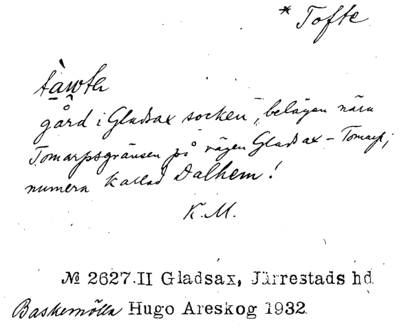 * Tofte
tạ̀wtɘ
gård i Gladsax socken, belägen nära
Tomarpsgränsen på vägen Gladsax - Tomarp,
numera kallad Dalhem!
K.M.
№ 2627.II Gladsax, Järrestads hd
Baskemölla Hugo Areskog 1932